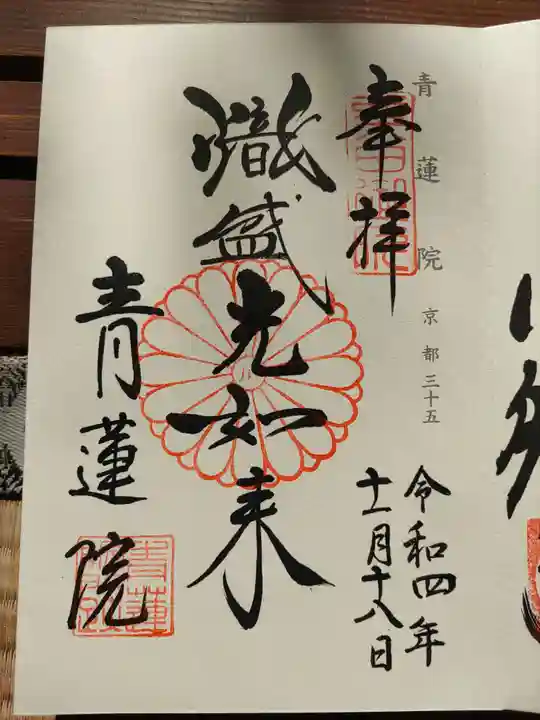 青蓮院 京都三十五
奉拝
令和四年
十一月十八日
熾盛光如来
青蓮院
青蓮